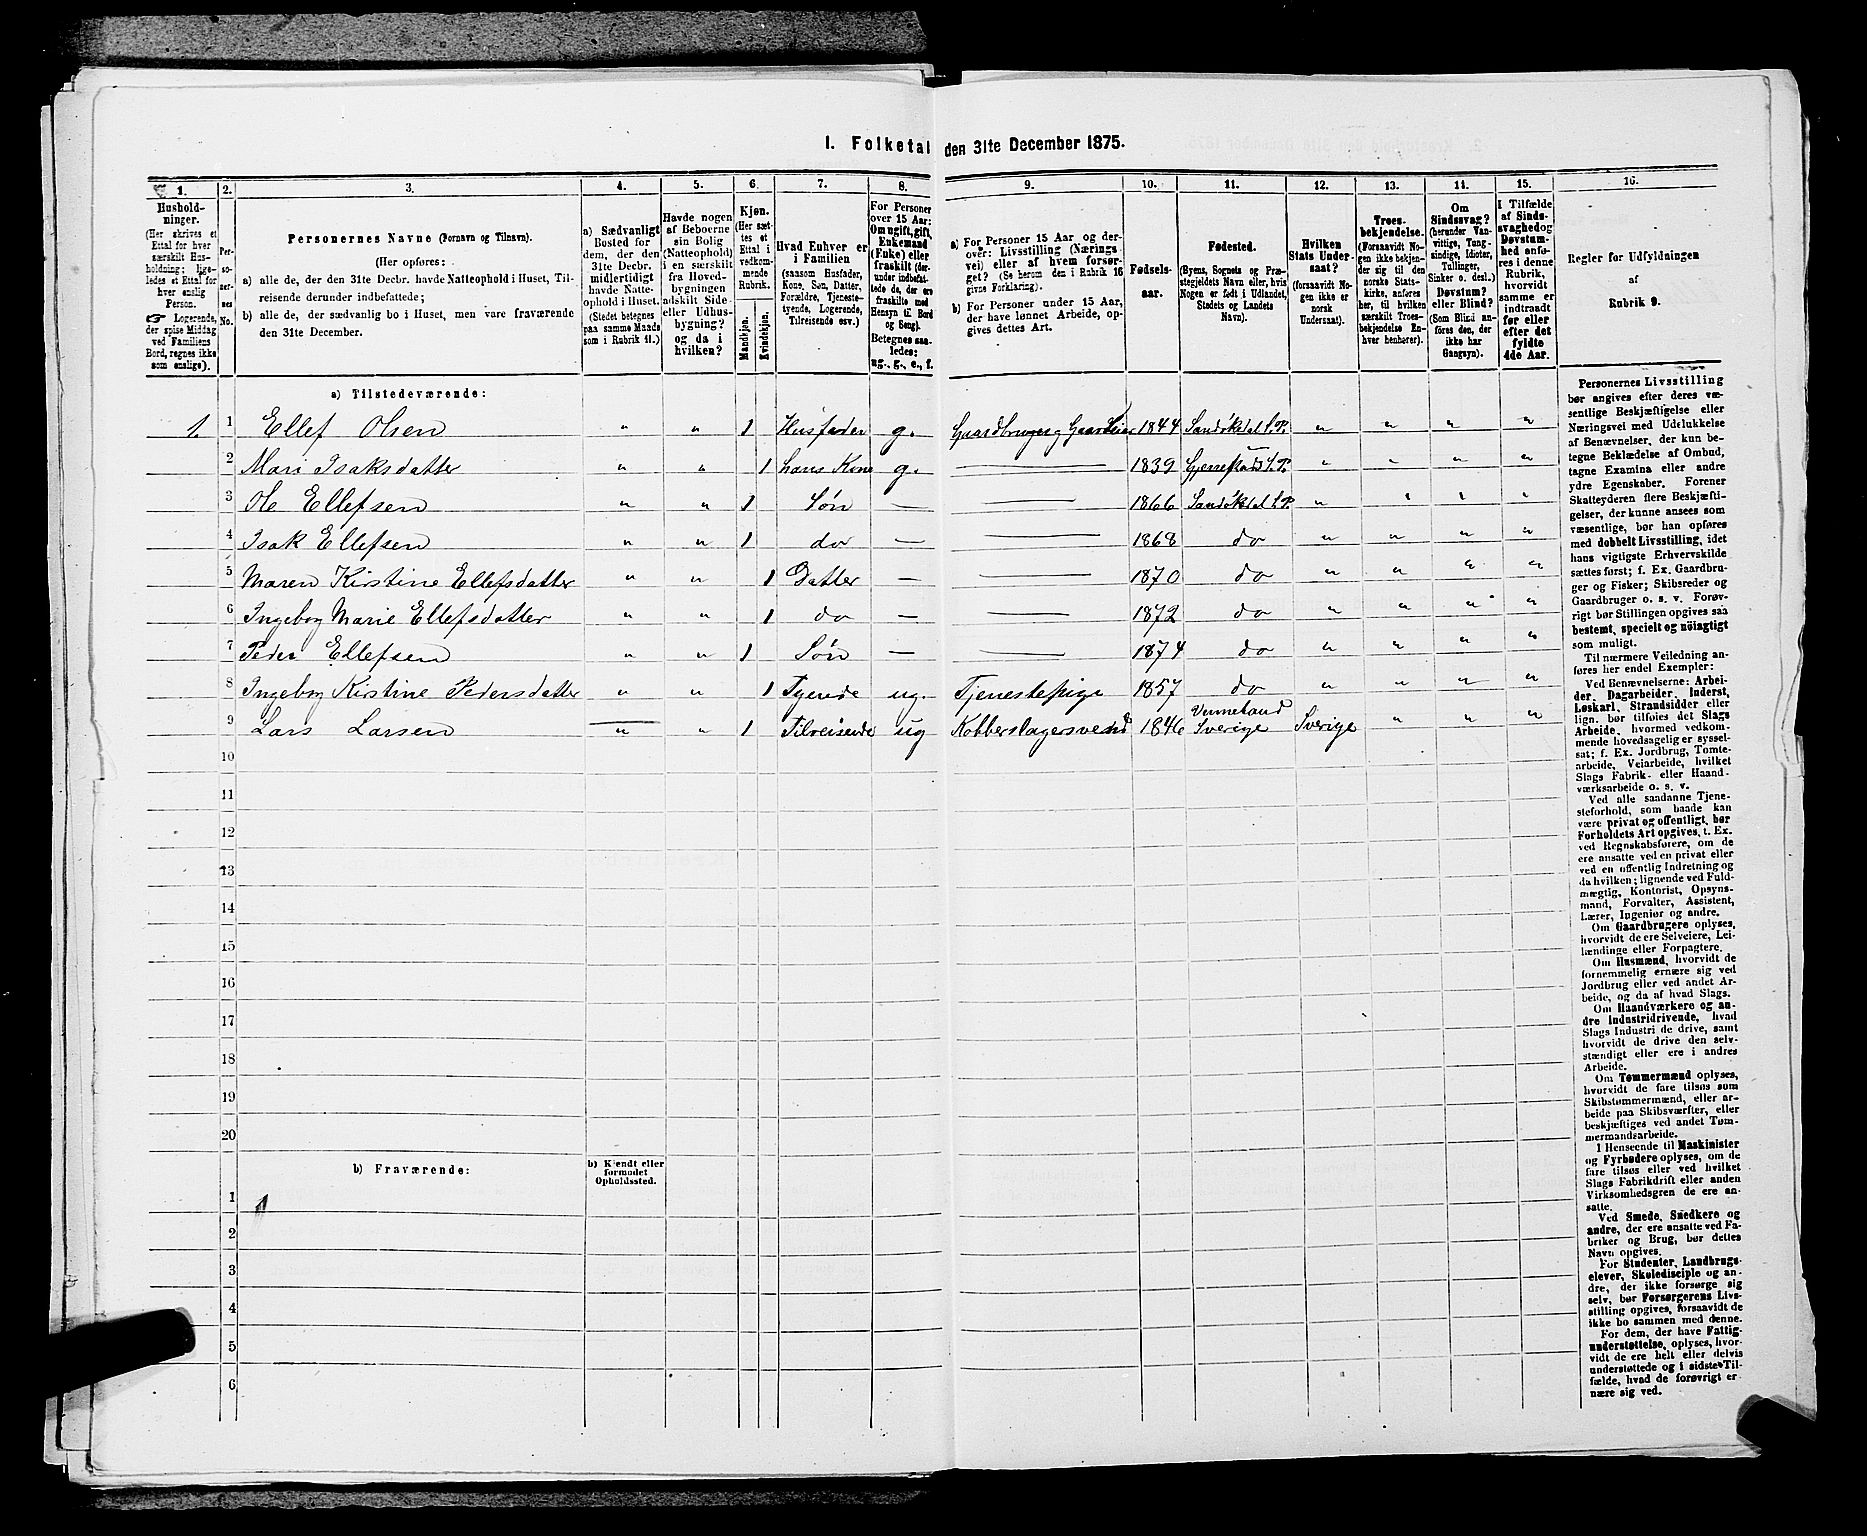 I. Folketal den 31te December 1875.
1.
2.
3.
4.
5.
6.
7.
8.
9.
10.
11.
12.
13.
14.
15.
16.
Hushold-
ninger.
(Her skrives et
Ettal for hver
særskilt Hus-
holdning; lige-
ledes et Ettal for
hver enslig
Person.
☞ Logerende,
der spise Middag
ved Familiens
Bord, regnes ikke
som enslige).
Per-
so-
ner-
nes
No.
Personernes Navne (Fornavn og Tilnavn).
(Her opføres:
a) alle de, der den 31te Decbr. havde Natteophold i Huset, Til-
reisende derunder indbefattede;
b) alle de, der sædvanlig bo i Huset, men vare fraværende
den 31te December.
a) Sædvanligt
Bosted for
dem, der den
31te Decbr.
midlertidigt
havde Natte-
ophold i Huset.
(Stedet betegnes
paa samme Maade
som i Rubrik 11.)
Havde nogen
af Beboerne
sin Bolig
(Natteophold)
i en særskilt
fra Hoved-
bygningen
adskilt Side-
eller Udhus-
bygning?
og da i
hvilken?
Kjøn.
(Her sæt-
tes et
Ettal i
vedkom-
mende
Rubrik.
Mandkjøn.
Kvindekjøn.
Hvad Enhver er
i Familien
(saasom Husfader,
Kone, Søn, Datter,
Forældre, Tjeneste-
tyende, Logerende,
Tilreisende osv.)
For Personer
over 15 Aar:
Om ugift, gift,
Enkemand
(Enke) eller
fraskilt (der-
under indbefat-
tede de, der ere
fraskilte med
Hensyn til Bord
og Seng).
Betegnes saa-
ledes:
ug., g., e., f.
a) For Personer 15 Aar og der-
over: Livsstilling (Nærings-
vei) eller af hvem forsør-
get? (Se herom den i Rubrik 16
givne Forklaring).
b) For Personer under 15 Aar,
der have lønnet Arbeide, op-
gives dettes Art.
Fødsels-
aar.
Fødested.
(Byens, Sognets og Præ-
stegjeldets Navn eller, hvis
Nogen er født i Udlandet,
Stedets og Landets
Navn).
Hvilken
Stats Under-
saat?
(forsaavidt No-
gen ikke er
norsk
Undersaat).
Troes-
bekjendelse.
(Forsaavidt No-
gen ikke bekjen-
der sig til den
norske Stats-
kirke, anføres
her, til hvilken
særskilt Troes-
bekjendelse En-
hver henhører).
Om
Sindssvag?
(herunder Van-
vittige, Tung-
sindige, Idioter,
Tullinger,
Sinker o. desl.)
Døvstum?
eller Blind?
(Som Blind an-
føres den, der
ikke har
Gangsyn).
I Tilfælde
af Sinds-
svaghed og
Døvstum-
hed anfø-
res i denne
Rubrik,
hvorvidt
samme er
indtraadt
før eller
efter det
fyldte
4de Aar.
Regler for Udfyldningen
af
Rubrik 9.
a) Tilstedeværende:
1. 1 Ellef Olsen " " 1 Husfader g. Gaardbruger 1844 Sandøkedal S. P. " " " "
2 Mari Isaksdatter " " 1 hans Kone g. — 1839 Gjerrestads S. P. " " " "
3 Ole Ellefsen " " 1 Søn — — 1866 Sandøkedal S. P. " " " "
4 Isak Ellefsen " " 1 do — — 1868 do " " " "
5 Maren Kirstine Ellefsdatter " " 1 Datter — — 1870 do " " " "
6 Ingebog Marie Ellefsdatter " " 1 do — — 1872 do " " " "
7 Peder Ellefsen " " 1 Søn — — 1874 do " " " "
8 Ingebog Kirstine Pedersdatter " " 1 Tyende ug. Tjenestepige 1857 do " " " "
9 Lars Larsen " " 1 Tilreisende ug Kobberslagersvend 1846 Vermeland Sverige Sverige " " "
10
11
12
13
14
15
16
17
18
19
20
b) Fraværende:
b) Kjendt eller
formodet
Opholdssted.
1
2
3
4
5
6
Personernes Livsstilling
bør angives efter deres væ-
sentlige Beskjæftigelse eller
Næringsvei med Udelukkelse
af Benævnelser, der kun be-
tegne Beklædelse af Ombud,
tagne Examina eller andre
ydre Egenskaber. Forener
Skatteyderen flere Beskjæfti-
gelser, der kunne ansees som
væsentlige, bør han opføres
med dobbelt Livsstilling, idet
hans vigtigste Erhvervskilde
sættes først; f. Ex. Gaardbru-
ger og Fisker; Skibsreder og
Gaardbruger o. s. v. Forøv-
rigt bør Stillingen opgives saa
bestemt, specielt og nöiagtigt
som muligt.
Til nærmere Veiledning an-
føres her endel Exempler:
Ved Benævnelserne: Arbei-
der, Dagarbeider, Inderst,
Løskarl, Strandsidder eller
lign. bør tilføies det Slags
Arbeide, hvormed vedkom-
mende hovedsagelig er syssel-
sat; f. Ex. Jordbrug, Tomte-
arbeide, Veiarbeide, hvilket
Slags Fabrik- eller Haand-
værksarbeide o. s. v.
Ved alle saadanne Tjene-
steforhold, som baade kan
være privat og offentligt, bør
Forholdets Art opgives, t. Ex.
ved Regnskabsførere, om de
ere ansatte ved en privat eller
ved en offentlig Indretning og
da hvilken; lignende ved Fuld-
mægtig, Kontorist, Opsyns-
mand, Forvalter, Assistent,
Lærer, Ingeniør og andre.
Om Gaardbrugere oplyses,
hvorvidt de ere Selveiere, Lei-
lændinge eller Forpagtere.
Om Husmænd, hvorvidt de
fornemmelig ernære sig ved
Jordbrug eller ved andet Ar-
beide, og da af hvad Slags.
Om Haandværkere og an-
dre Industridrivende, hvad
Slags Industri de drive, samt
hvorvidt de drive den selv-
stændigt eller ere i andres
Arbeide.
Om Tømmermænd oplyses,
hvorvidt de fare tilsøs som
Skibstømmermænd, eller ar-
beide paa Skibsværfter, eller
beskjæftiges ved andet Tøm-
mermandsarbeide.
I Henseende til Maskinister
og Fyrbødere oplyses, om de
fare tilsøs eller ved hvilket
Slags Fabrikdrift eller anden
Virksomhedsgren de ere an-
satte.
Ved Smede, Snedkere og
andre, der ere ansatte ved Fa-
briker og Brug, bør dettes
Navn opgives.
For Studenter, Landbrugs-
elever, Skoledisciple og an-
dre, der ikke forsørge sig
selv, bør Forsørgerens Livs-
stilling opgives, forsaavidt de
ikke bo sammen med denne.
For dem, der have Fattig-
understøttelse, oplyses, hvor-
vidt de ere helt eller delvis
understøttede og i sidste Til-
fælde, hvad de forøvrigt er-
nære sig ved.